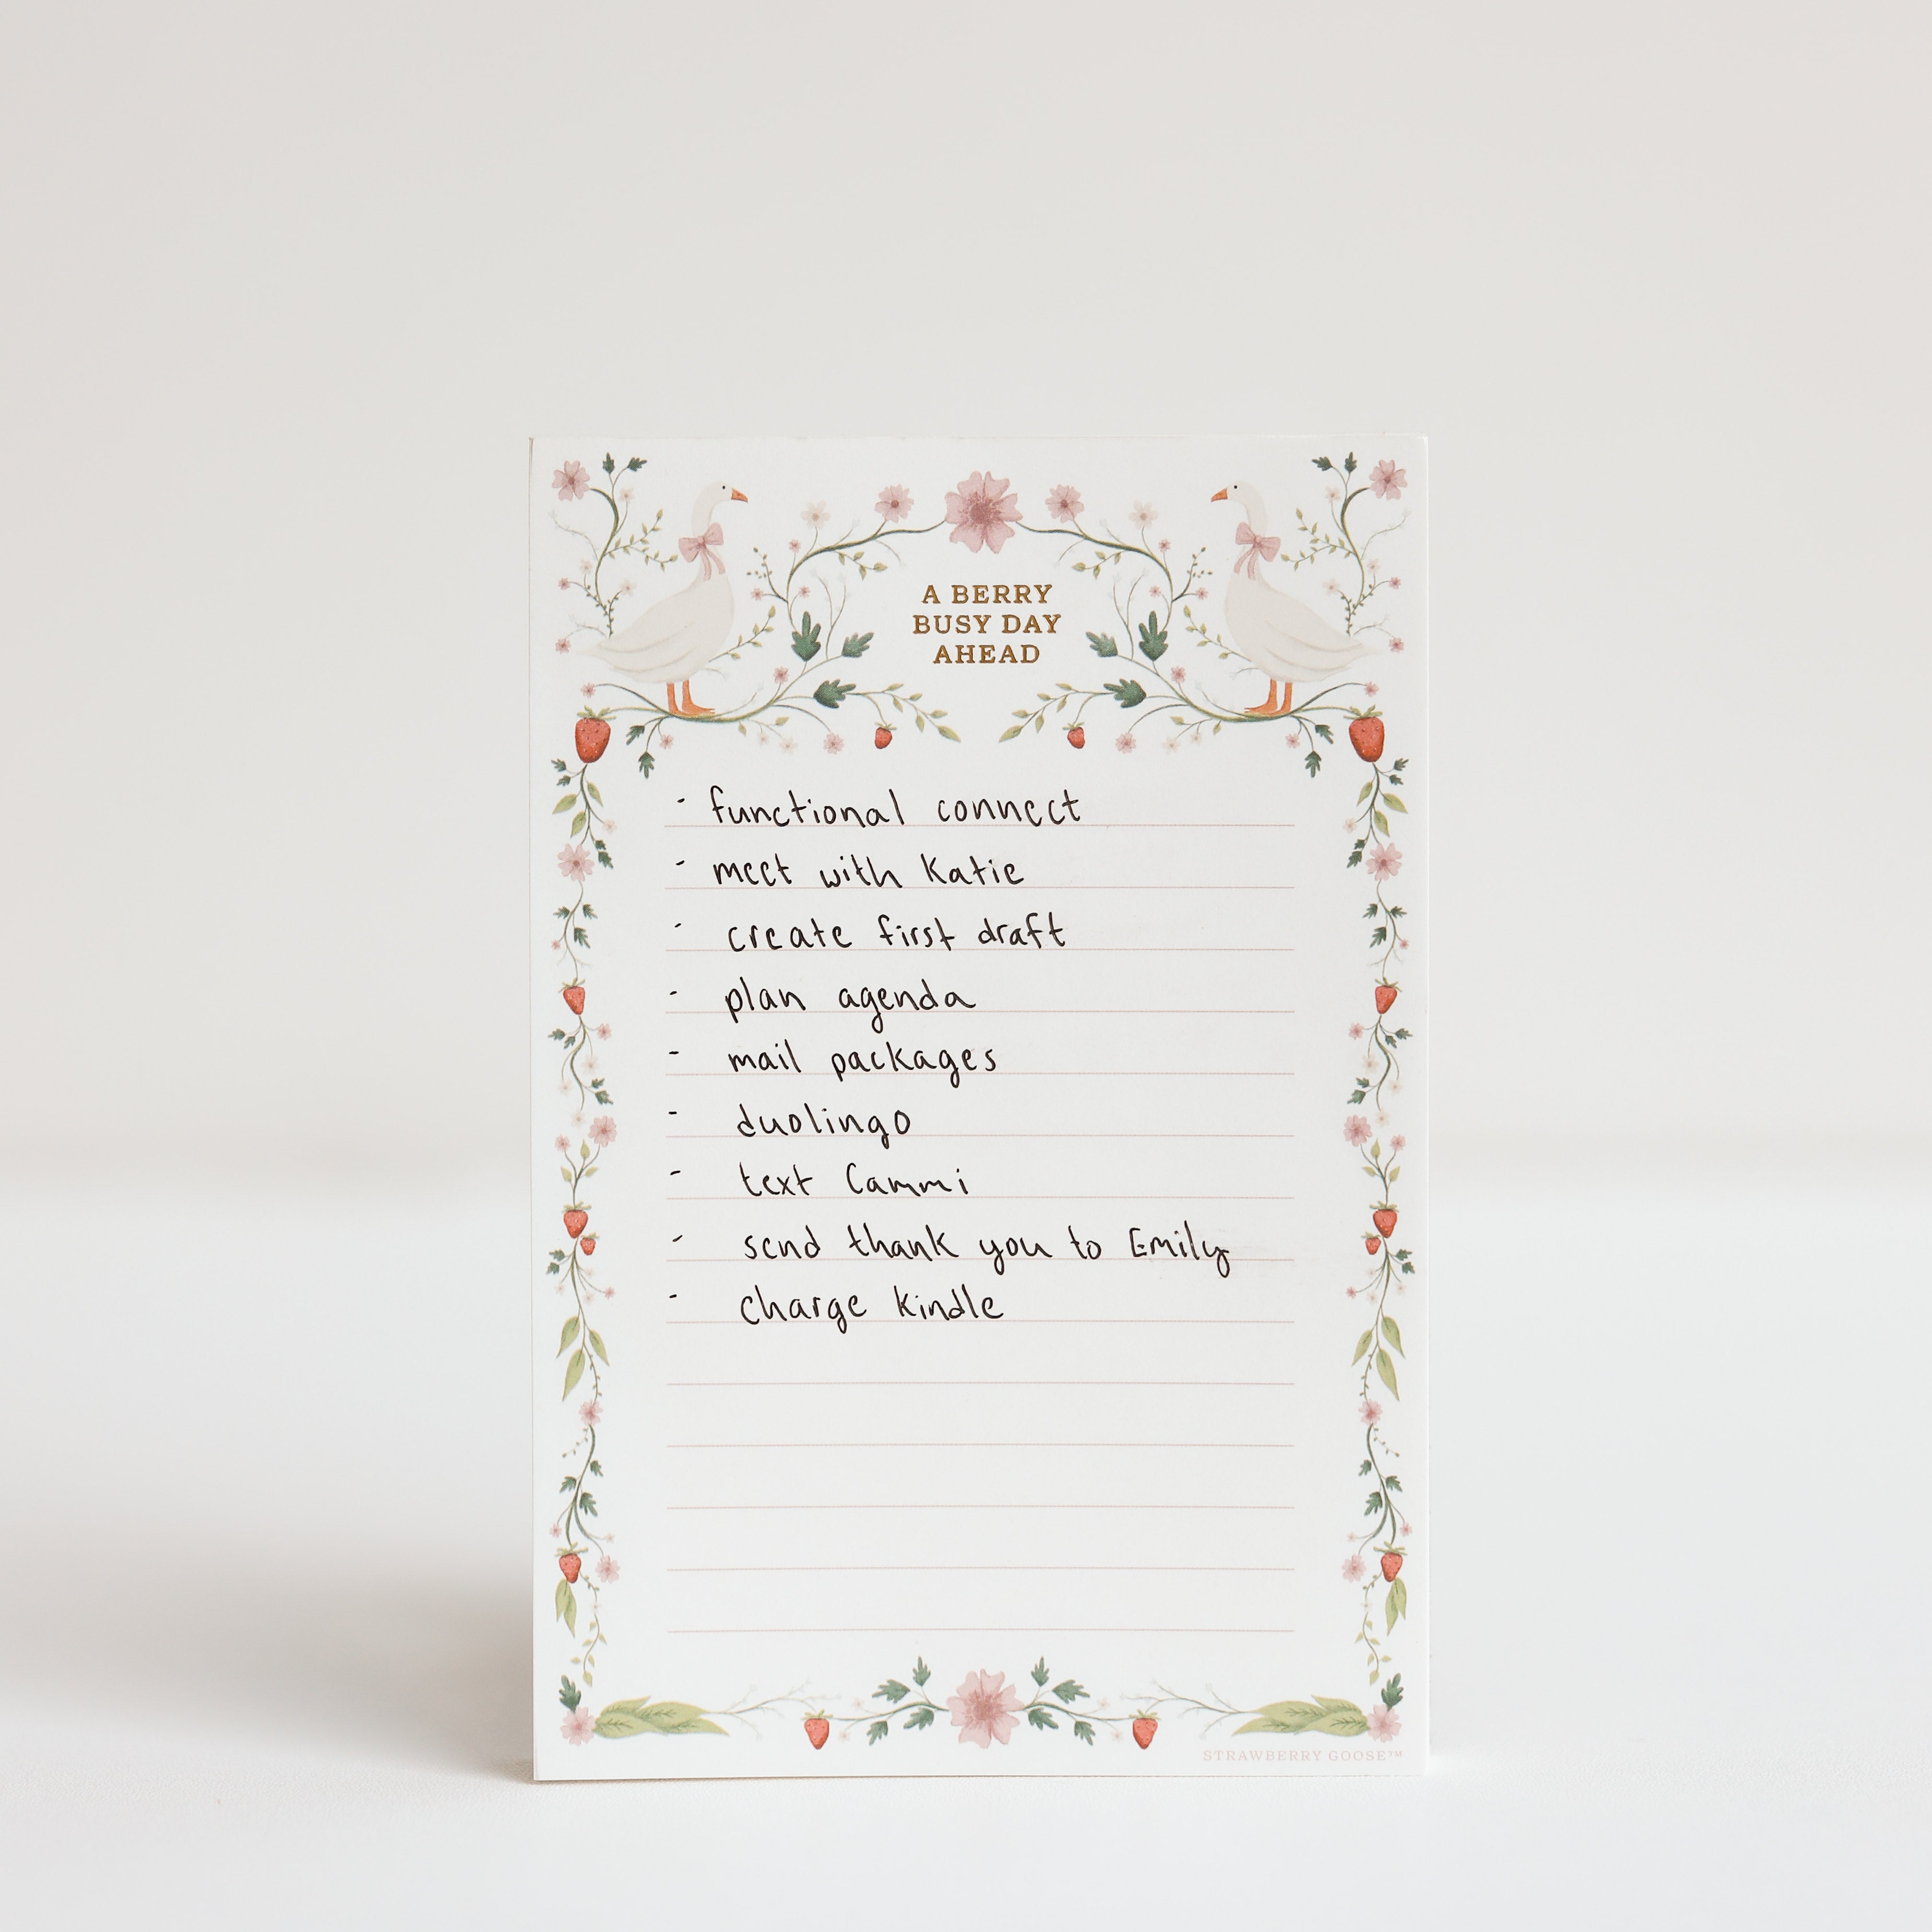 A BERRY
BUSY DAY
AHEAD
- functional connect
- meet with Katie
- create first draft
- plan agenda
- mail packages
- duolingo
- text Cammi
- send thank you to Emily
- charge kindle
STRAWBERRY GOOSE™